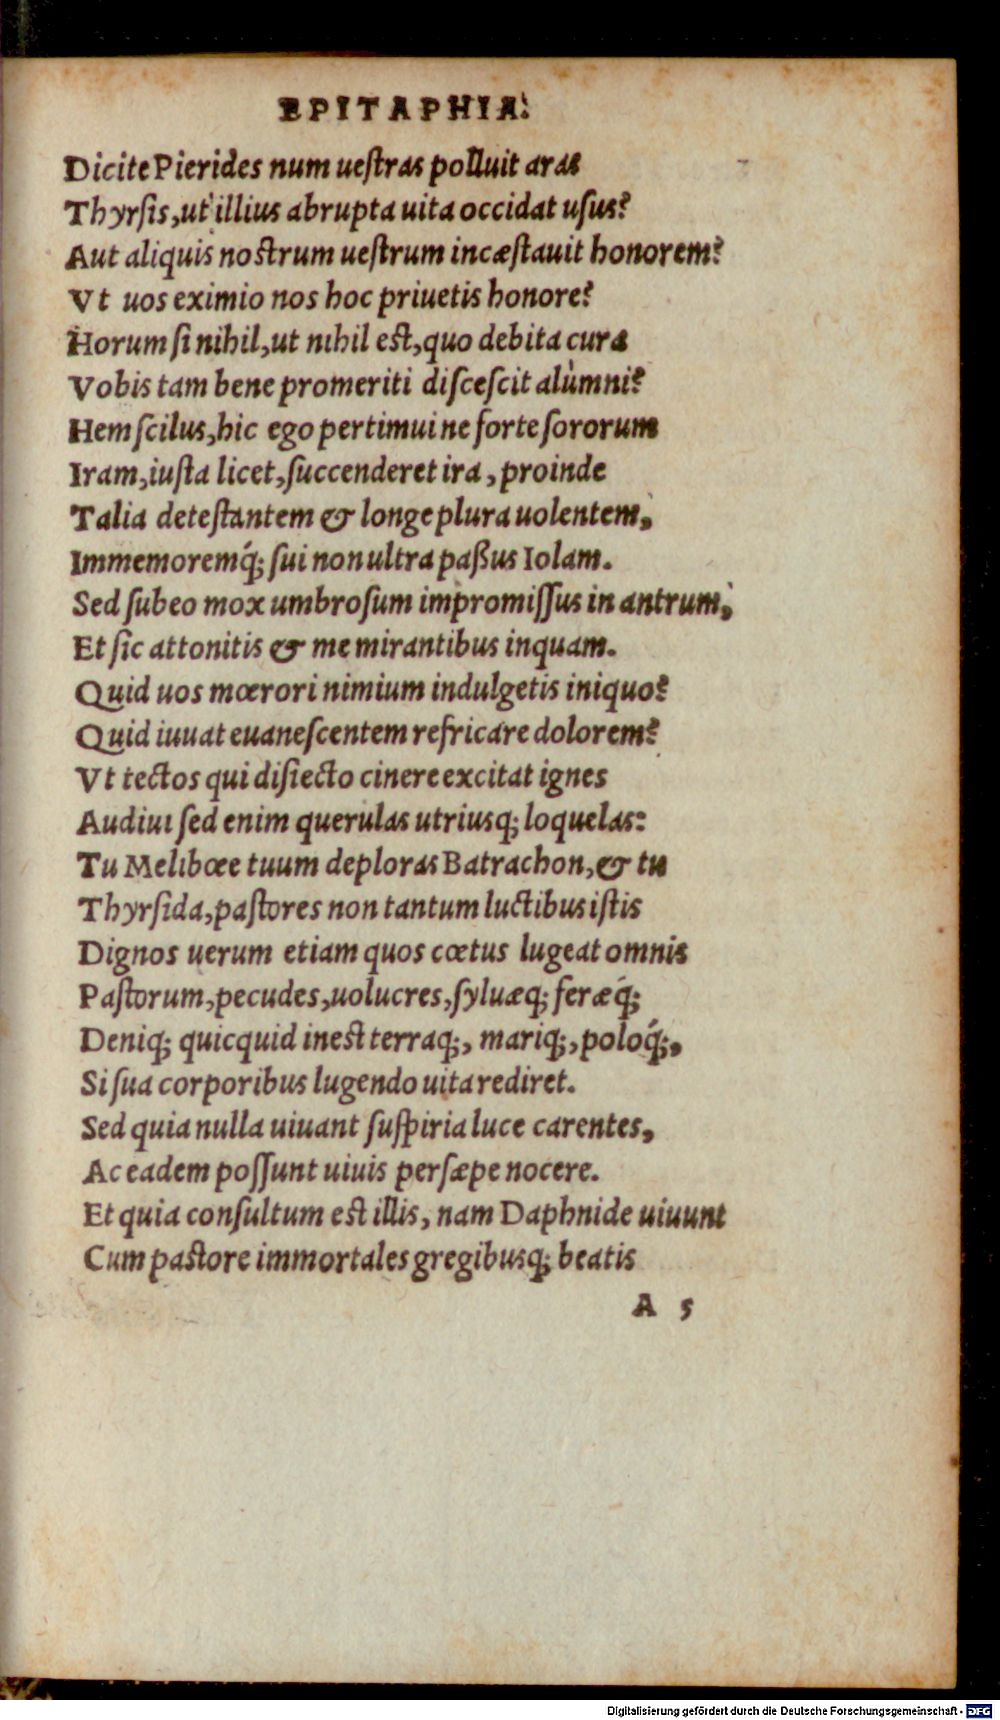 EPITAPHIA.
Dicite Pierides num ueſtras polluit aras
Thyrſis, ut illius abrupta uita occidat uſus?
Aut aliquis noſtrum ueſtrum incæſtauit honorem?
Vt uos eximio nos hoc priuetis honore?
Horum ſi nihil, ut nihil eſt, quo debita cura
Vobis tam bene promeriti diſceſcit alumni?
Hem ſcilus, hic ego pertimui ne forte ſororum
Iram, iuſta licet, ſuccenderet ira, proinde
Talia deteſtantem & longe plura uolentem,
Immemoremq́; ſui non ultra paßus Iolam.
Sed ſubeo mox umbroſum impromiſſus in antrum,
Et ſic attonitis & me mirantibus inquam.
Quid uos mœrori nimium indulgetis iniquo?
Quid iuuat euaneſcentem refricare dolorem?
Vt tectos qui diſiecto cinere excitat ignes
Audiui ſed enim querulas utriusq; loquelas:
Tu Melibœe tuum deploras Batrachon, & tu
Thyrſida, paſtores non tantum luctibus iſtis
Dignos uerum etiam quos cœtus lugeat omnis
Paſtorum, pecudes, uolucres, ſyluæq; feræq́;
Deniq; quicquid ineſt terraq;, mariq;, poloq́;,
Si ſua corporibus lugendo uita rediret.
Sed quia nulla uiuant ſuſpiria luce carentes,
Ac eadem poſſunt uiuis perſæpe nocere.
Et quia conſultum eſt illis, nam Daphnide uiuunt
Cum paſtore immortales gregibusq; beatis
A 5
Digitalisierung gefördert durch die Deutsche Forschungsgemeinschaft - DFG